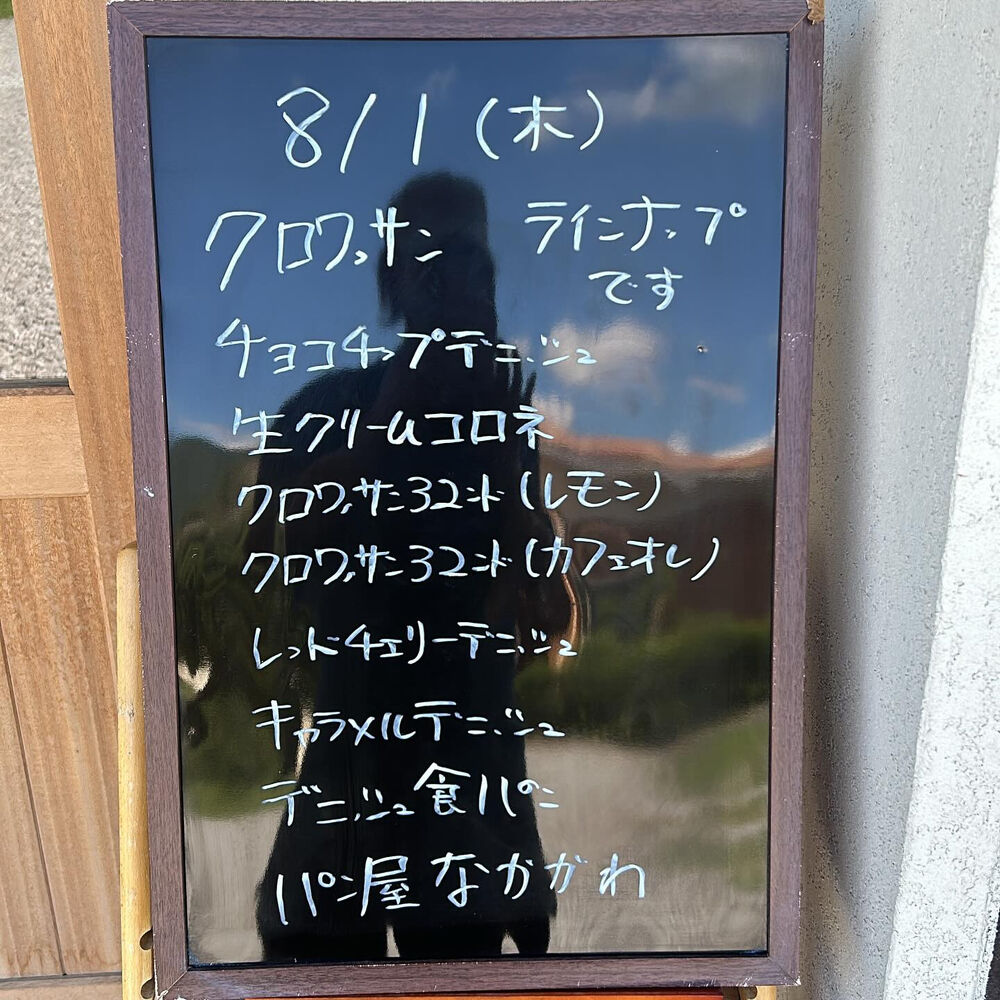 8/1(木)
クロワッサン ラインナップ
です
チョコチップデニッシュ
生クリームコロネ
クロワッサンラスク(レモン)
クロワッサンラスク(カフェオレ)
レッドチェリーデニッシュ
キャラメルデニッシュ
デニッシュ食パン
パン屋なかがわ